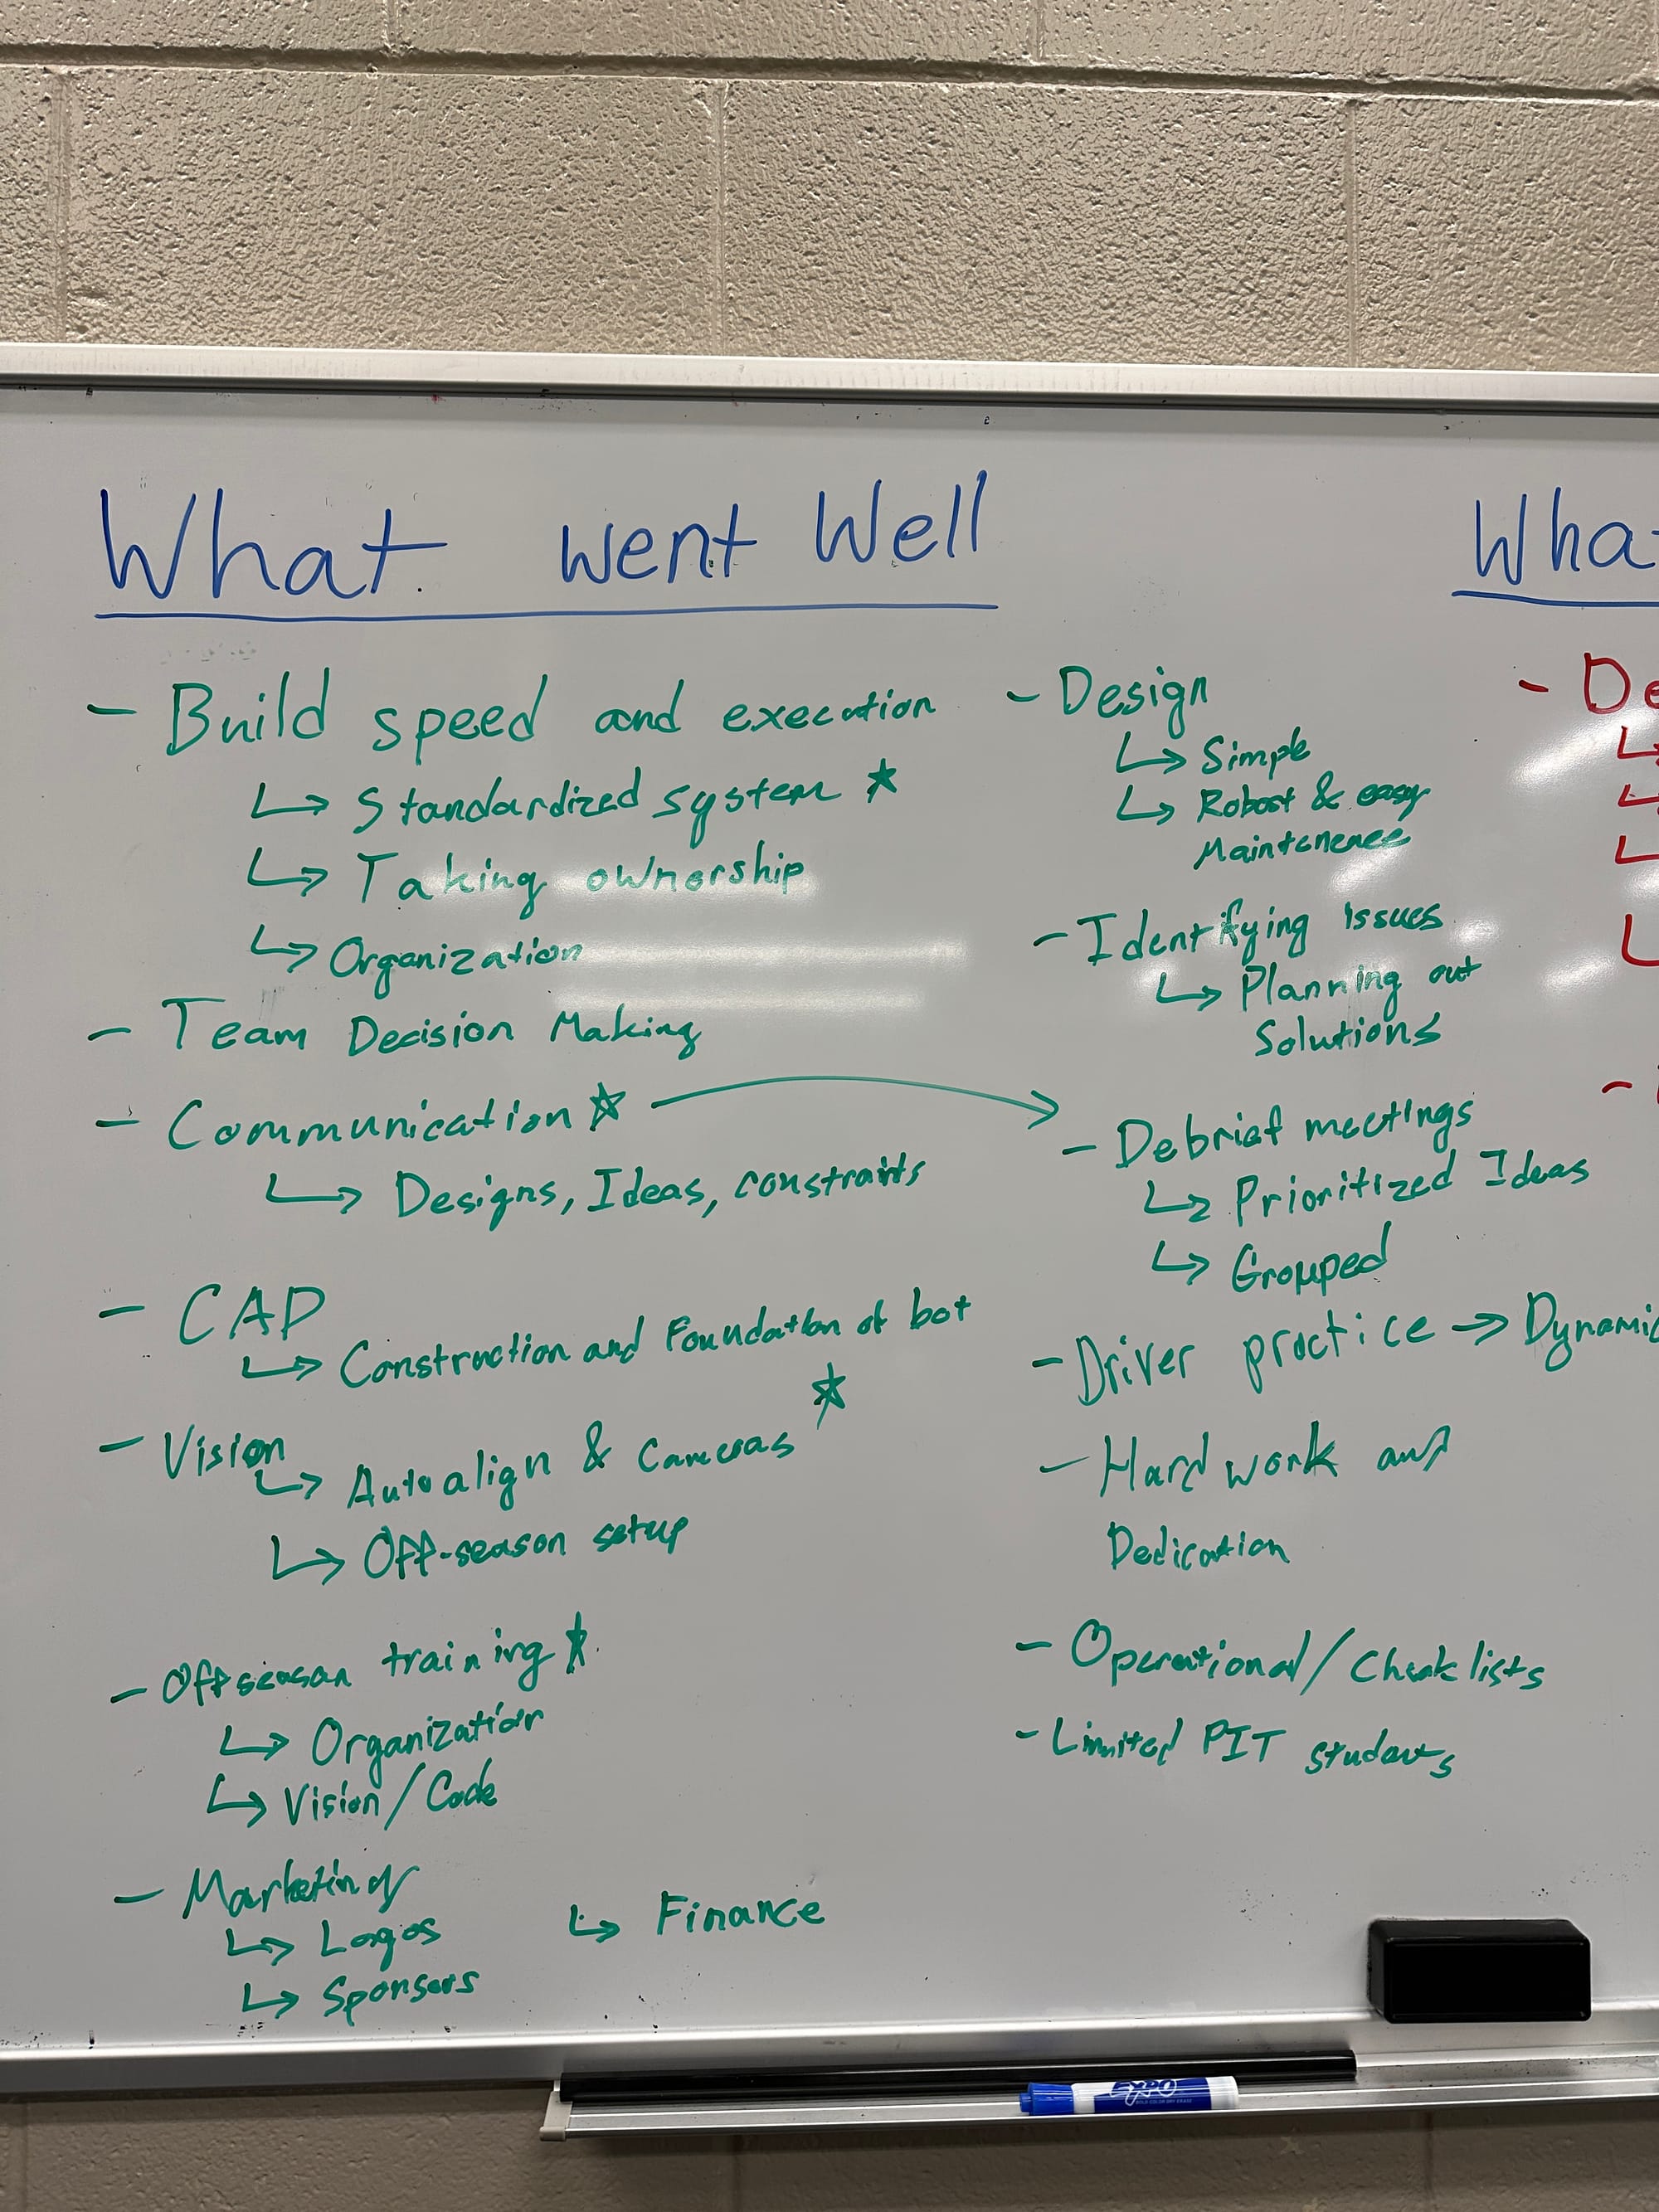 What went Well
- Build speed and execution
↳ Standardized system ★
↳ Taking ownership
↳ Organization
- Team Decision Making
- Communication ☆ →
↳ Designs, Ideas, constraints
- CAD
↳ Construction and Foundation of bot
- Vision
↳ Auto align & Cameras ☆
↳ Off-season setup
- Offseason training ★
↳ Organization
↳ Vision/Code
- Marketing
↳ Logos
↳ Sponsors
↳ Finance
- Design
↳ Simple
↳ Robost & easy
Maintenence
- Identifying issues
↳ Planning out
Solutions
- Debrief meetings
↳ Prioritized Ideas
↳ Grouped
- Driver practice → Dynamic
- Hard work and
Dedication
- Operational/Checklists
- Limited PIT students
Wha
- De
EXPO